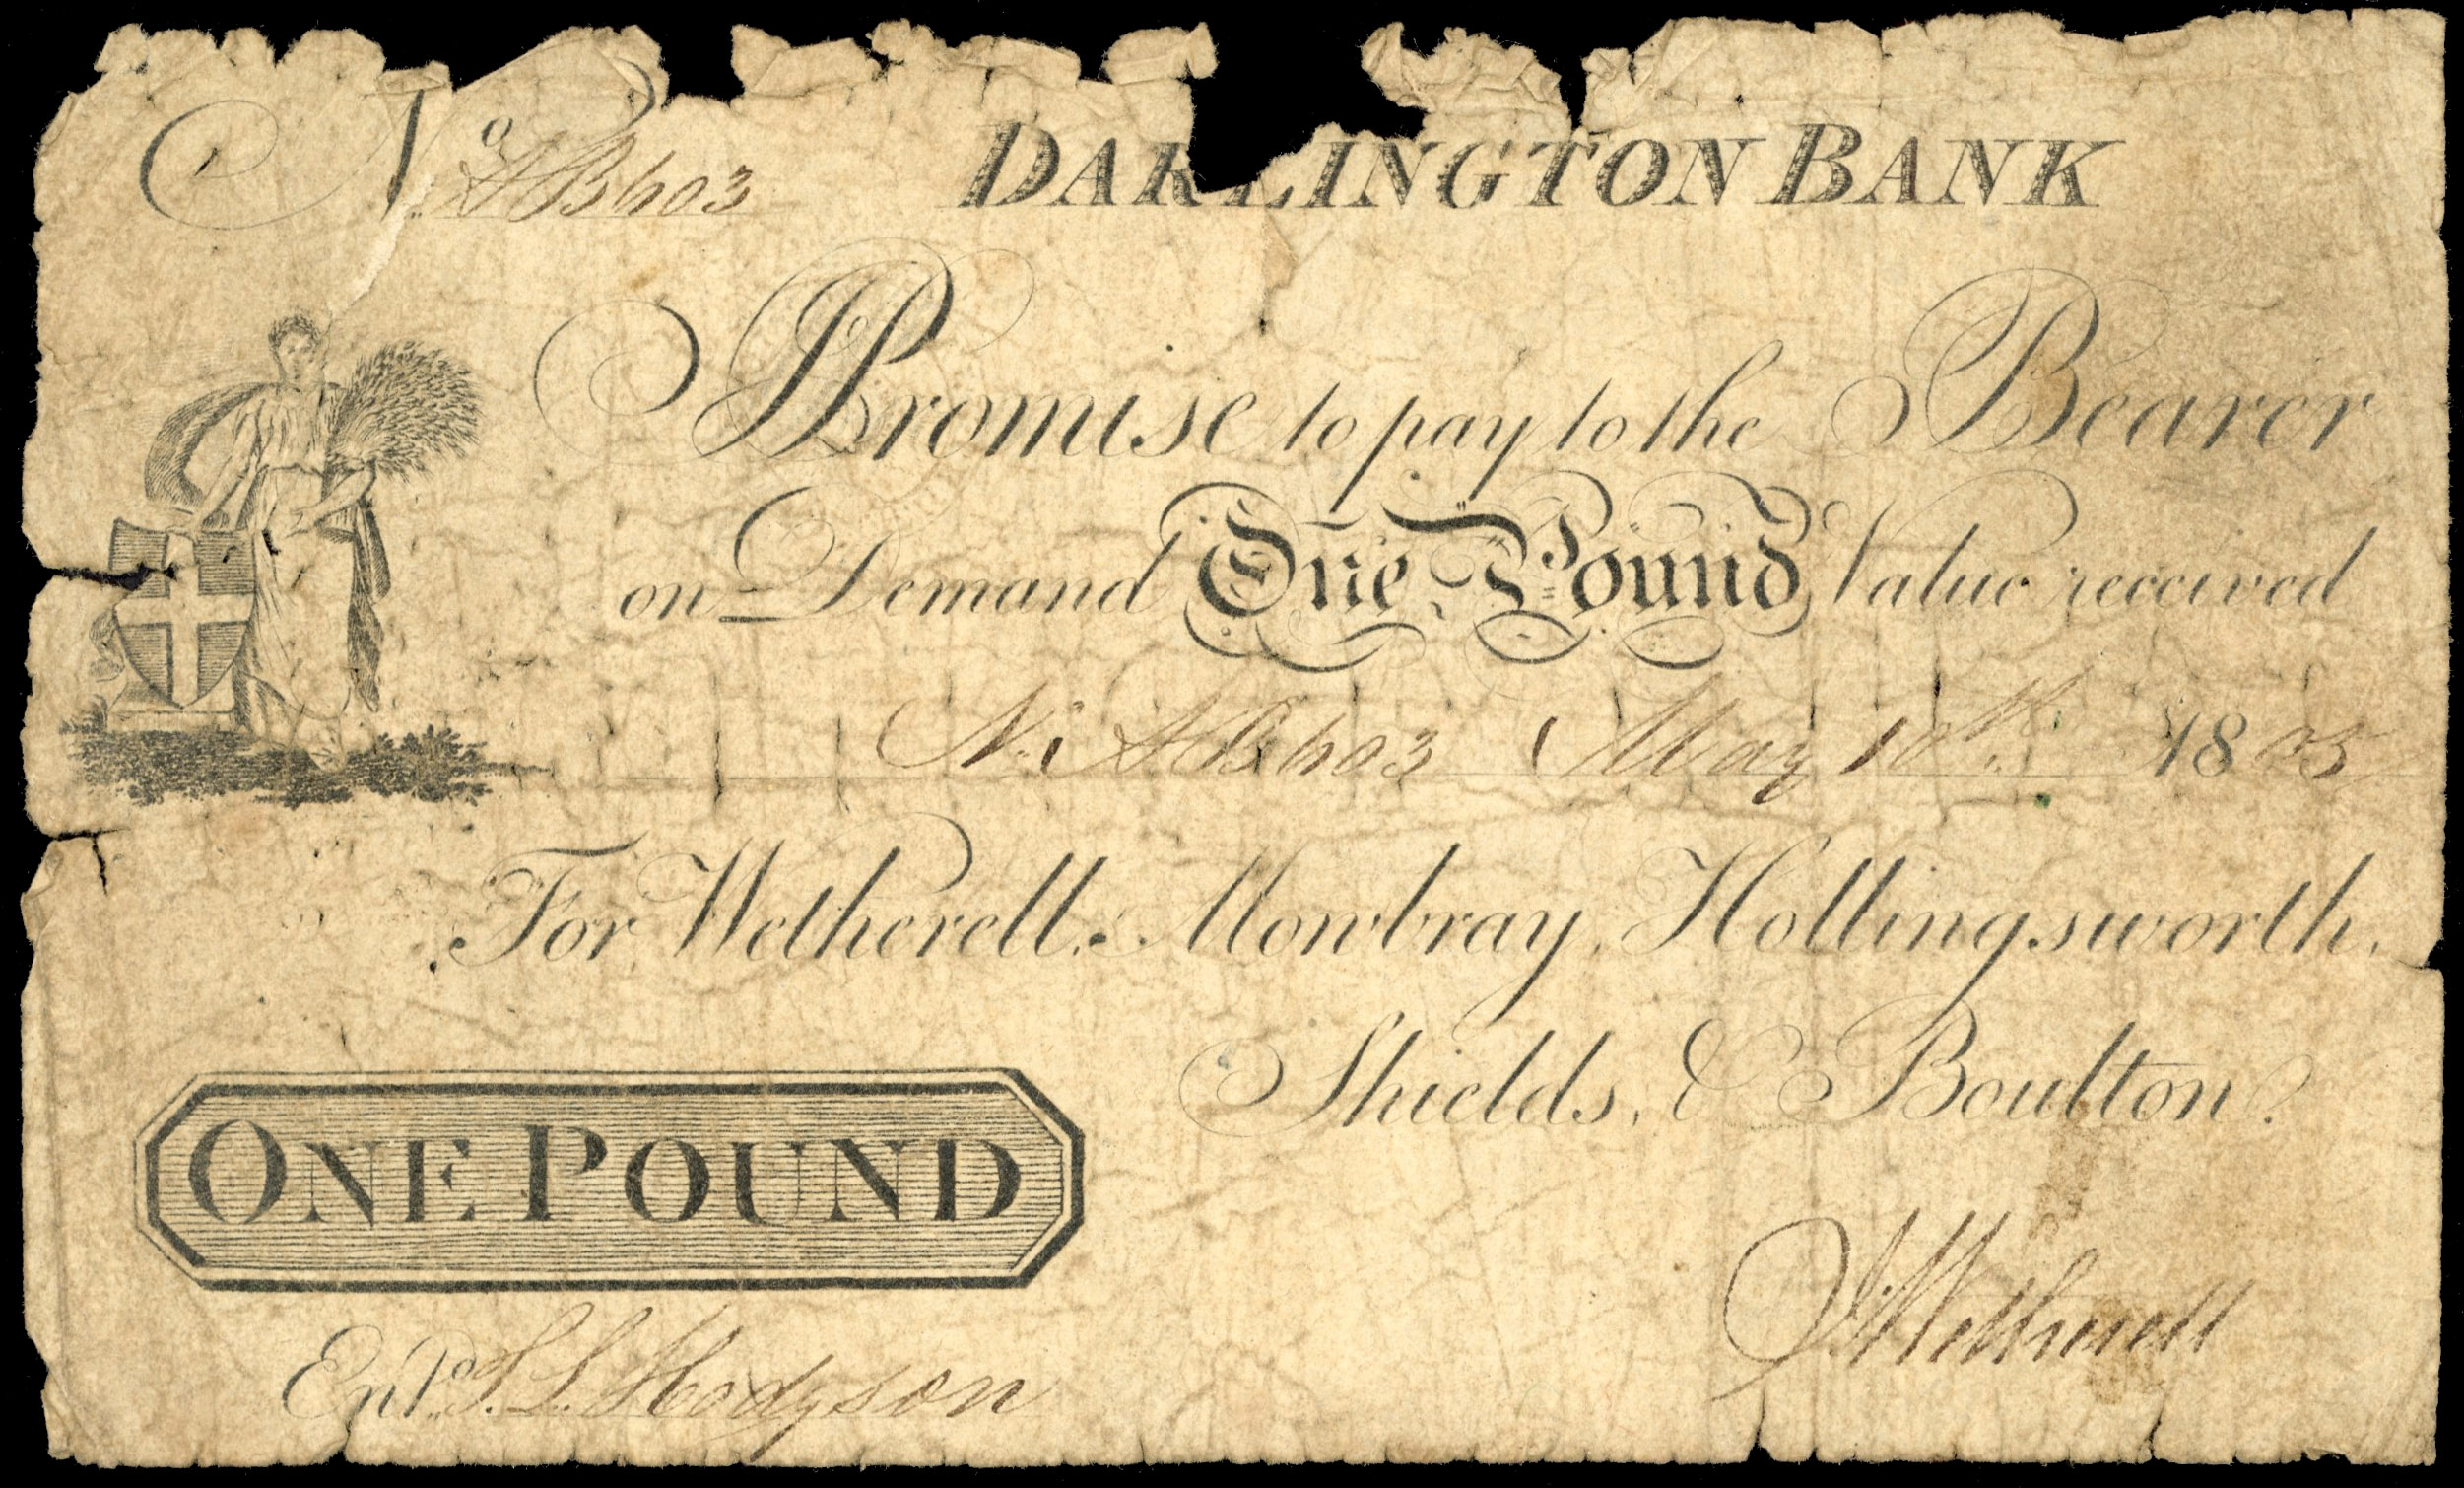 No AB603 DARLINGTON BANK
I Promise to pay to the Bearer
on Demand One Pound Value received
No AB603 May 10th 1805
For Wetherell, Mowbray, Hollingsworth,
Shields, & Boulton.
ONE POUND
JWetherell
Entd. S. L. Hodgson